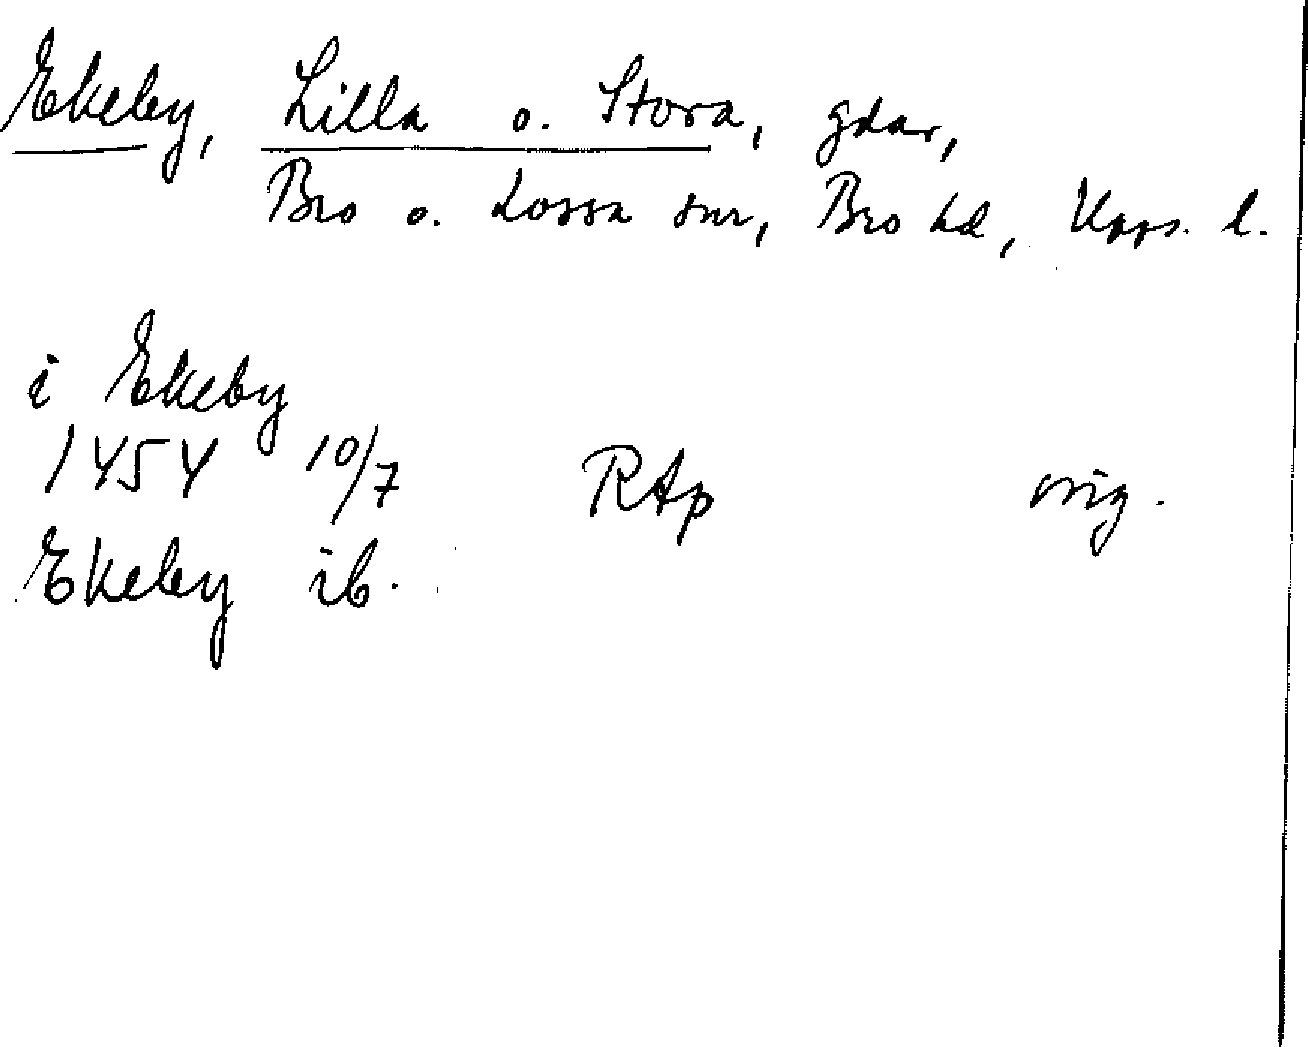 Ekeby, Lilla o. Stora, gdar,
Bro o. Lossa snr, Bro hd, Upps. l.
i Ekeby
1454 10/7 RAp orig.
Ekeby ib.